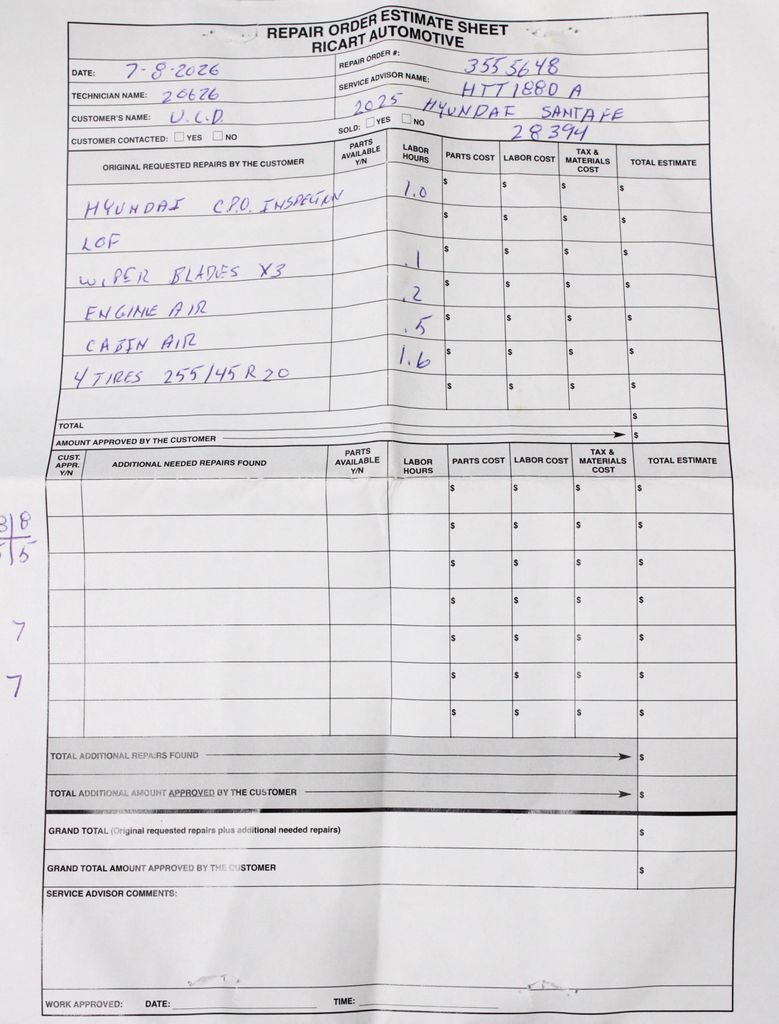 REPAIR ORDER ESTIMATE SHEET
RICART AUTOMOTIVE
DATE: 7-8-2026
REPAIR ORDER #: 3555648
TECHNICIAN NAME: 20626
SERVICE ADVISOR NAME: HTT1880A
CUSTOMER'S NAME: U.C.D
2025 HYUNDAI SANTAFE
CUSTOMER CONTACTED: YES NO
SOLD: YES NO
28394
ORIGINAL REQUESTED REPAIRS BY THE CUSTOMER PARTS AVAILABLE Y/N LABOR HOURS PARTS COST LABOR COST TAX & MATERIALS COST TOTAL ESTIMATE
HYUNDAI C.P.O. INSPECTION 1.0 $ $ $ $
LOF $ $ $ $
WIPER BLADES X3 .1 $ $ $ $
ENGINE AIR .2 $ $ $ $
CABIN AIR .5 $ $ $ $
4 TIRES 255/45 R 20 1.6 $ $ $ $
$ $ $ $
TOTAL $
AMOUNT APPROVED BY THE CUSTOMER $
CUST. APPR. Y/N ADDITIONAL NEEDED REPAIRS FOUND PARTS AVAILABLE Y/N LABOR HOURS PARTS COST LABOR COST TAX & MATERIALS COST TOTAL ESTIMATE
$ $ $ $
8
$ $ $ $
5
$ $ $ $
$ $ $ $
7
$ $ $ $
7
$ $ $ $
$ $ $ $
TOTAL ADDITIONAL REPAIRS FOUND $
TOTAL ADDITIONAL AMOUNT APPROVED BY THE CUSTOMER $
GRAND TOTAL (Original requested repairs plus additional needed repairs) $
GRAND TOTAL AMOUNT APPROVED BY THE CUSTOMER $
SERVICE ADVISOR COMMENTS:
WORK APPROVED: DATE: TIME: